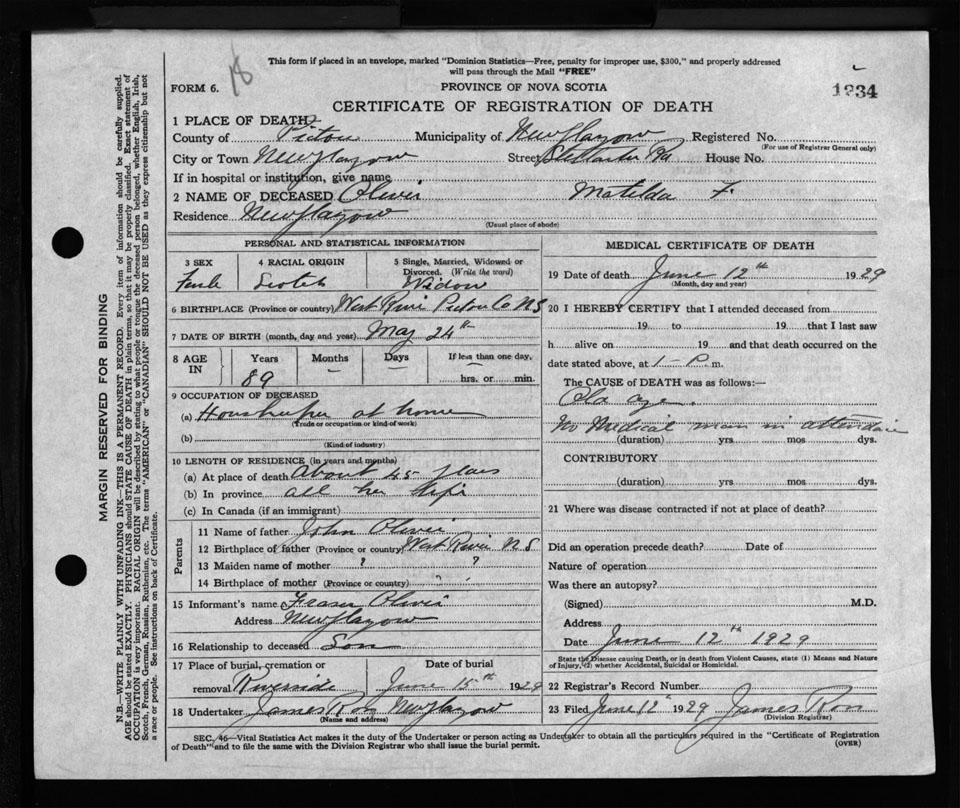 18
This form if placed in an envelope, marked "Dominion Statistics—Free, penalty for improper use, $300," and properly addressed
will pass through the Mail "FREE"
FORM 6.
PROVINCE OF NOVA SCOTIA
1934
CERTIFICATE OF REGISTRATION OF DEATH
1 PLACE OF DEATH
County of Pictou Municipality of New Glasgow Registered No.
(For use of Registrar General only)
City or Town New Glasgow Street Stellarton Rd House No.
If in hospital or institution, give name
2 NAME OF DECEASED Oliver Matilda F
Residence New Glasgow
(Usual place of abode)
PERSONAL AND STATISTICAL INFORMATION
3 SEX 4 RACIAL ORIGIN 5 Single, Married, Widowed or
Divorced. (Write the word)
Female Scotch Widow
6 BIRTHPLACE (Province or country) West River Pictou Co N S
7 DATE OF BIRTH (month, day and year) May 24th
8 AGE IN Years Months Days If less than one day,
89 – – hrs. or min.
9 OCCUPATION OF DECEASED
(a) Housekeeper at home
(Trade or occupation or kind of work)
(b)
(Kind of industry)
10 LENGTH OF RESIDENCE (in years and months)
(a) At place of death About 45 years
(b) In province all her life
(c) In Canada (if an immigrant)
Parents
11 Name of father John Oliver
12 Birthplace of father (Province or country) West River N S
13 Maiden name of mother ? ?
14 Birthplace of mother (Province or country) ?
15 Informant's name Fraser Oliver
Address New Glasgow
16 Relationship to deceased Son
17 Place of burial, cremation or Date of burial
removal Riverside June 15th 1929
18 Undertaker James Ross New Glasgow
(Name and address)
MEDICAL CERTIFICATE OF DEATH
19 Date of death June 12th 1929
(Month, day and year)
20 I HEREBY CERTIFY that I attended deceased from
19 to 19 that I last saw
h alive on 19 and that death occurred on the
date stated above, at 1– P. m.
The CAUSE of DEATH was as follows:—
Old age.
No Medical man in attendance
(duration) yrs. mos dys.
CONTRIBUTORY
(duration) yrs. mos. dys.
21 Where was disease contracted if not at place of death?
Did an operation precede death? Date of
Nature of operation
Was there an autopsy?
(Signed) M.D.
Address
Date June 12th 1929
State the Disease causing Death, or in death from Violent Causes, state (1) Means and Nature
of Injury, (2) whether Accidental, Suicidal or Homicidal.
22 Registrar's Record Number
23 Filed June 12 1929 James Ross
(Division Registrar)
SEC. 46—Vital Statistics Act makes it the duty of the Undertaker or person acting as Undertaker to obtain all the particulars required in the "Certificate of Registration
of Death" and to file the same with the Division Registrar who shall issue the burial permit.
(OVER)
MARGIN RESERVED FOR BINDING
N.B.—WRITE PLAINLY WITH UNFADING INK—THIS IS A PERMANENT RECORD. Every item of information should be carefully supplied.
AGE should be stated EXACTLY. PHYSICIANS should STATE CAUSE OF DEATH in plain terms, so that it may be properly classified. Exact statement of
OCCUPATION is very important. RACIAL ORIGIN will be described by stating to what people or tongue the deceased person belonged, whether English, Irish,
Scotch, French, German, Russian, Ruthenian, etc. The terms "AMERICAN" or "CANADIAN" SHOULD NOT BE USED as they express citizenship but not
a race or people. See instructions on back of Certificate.